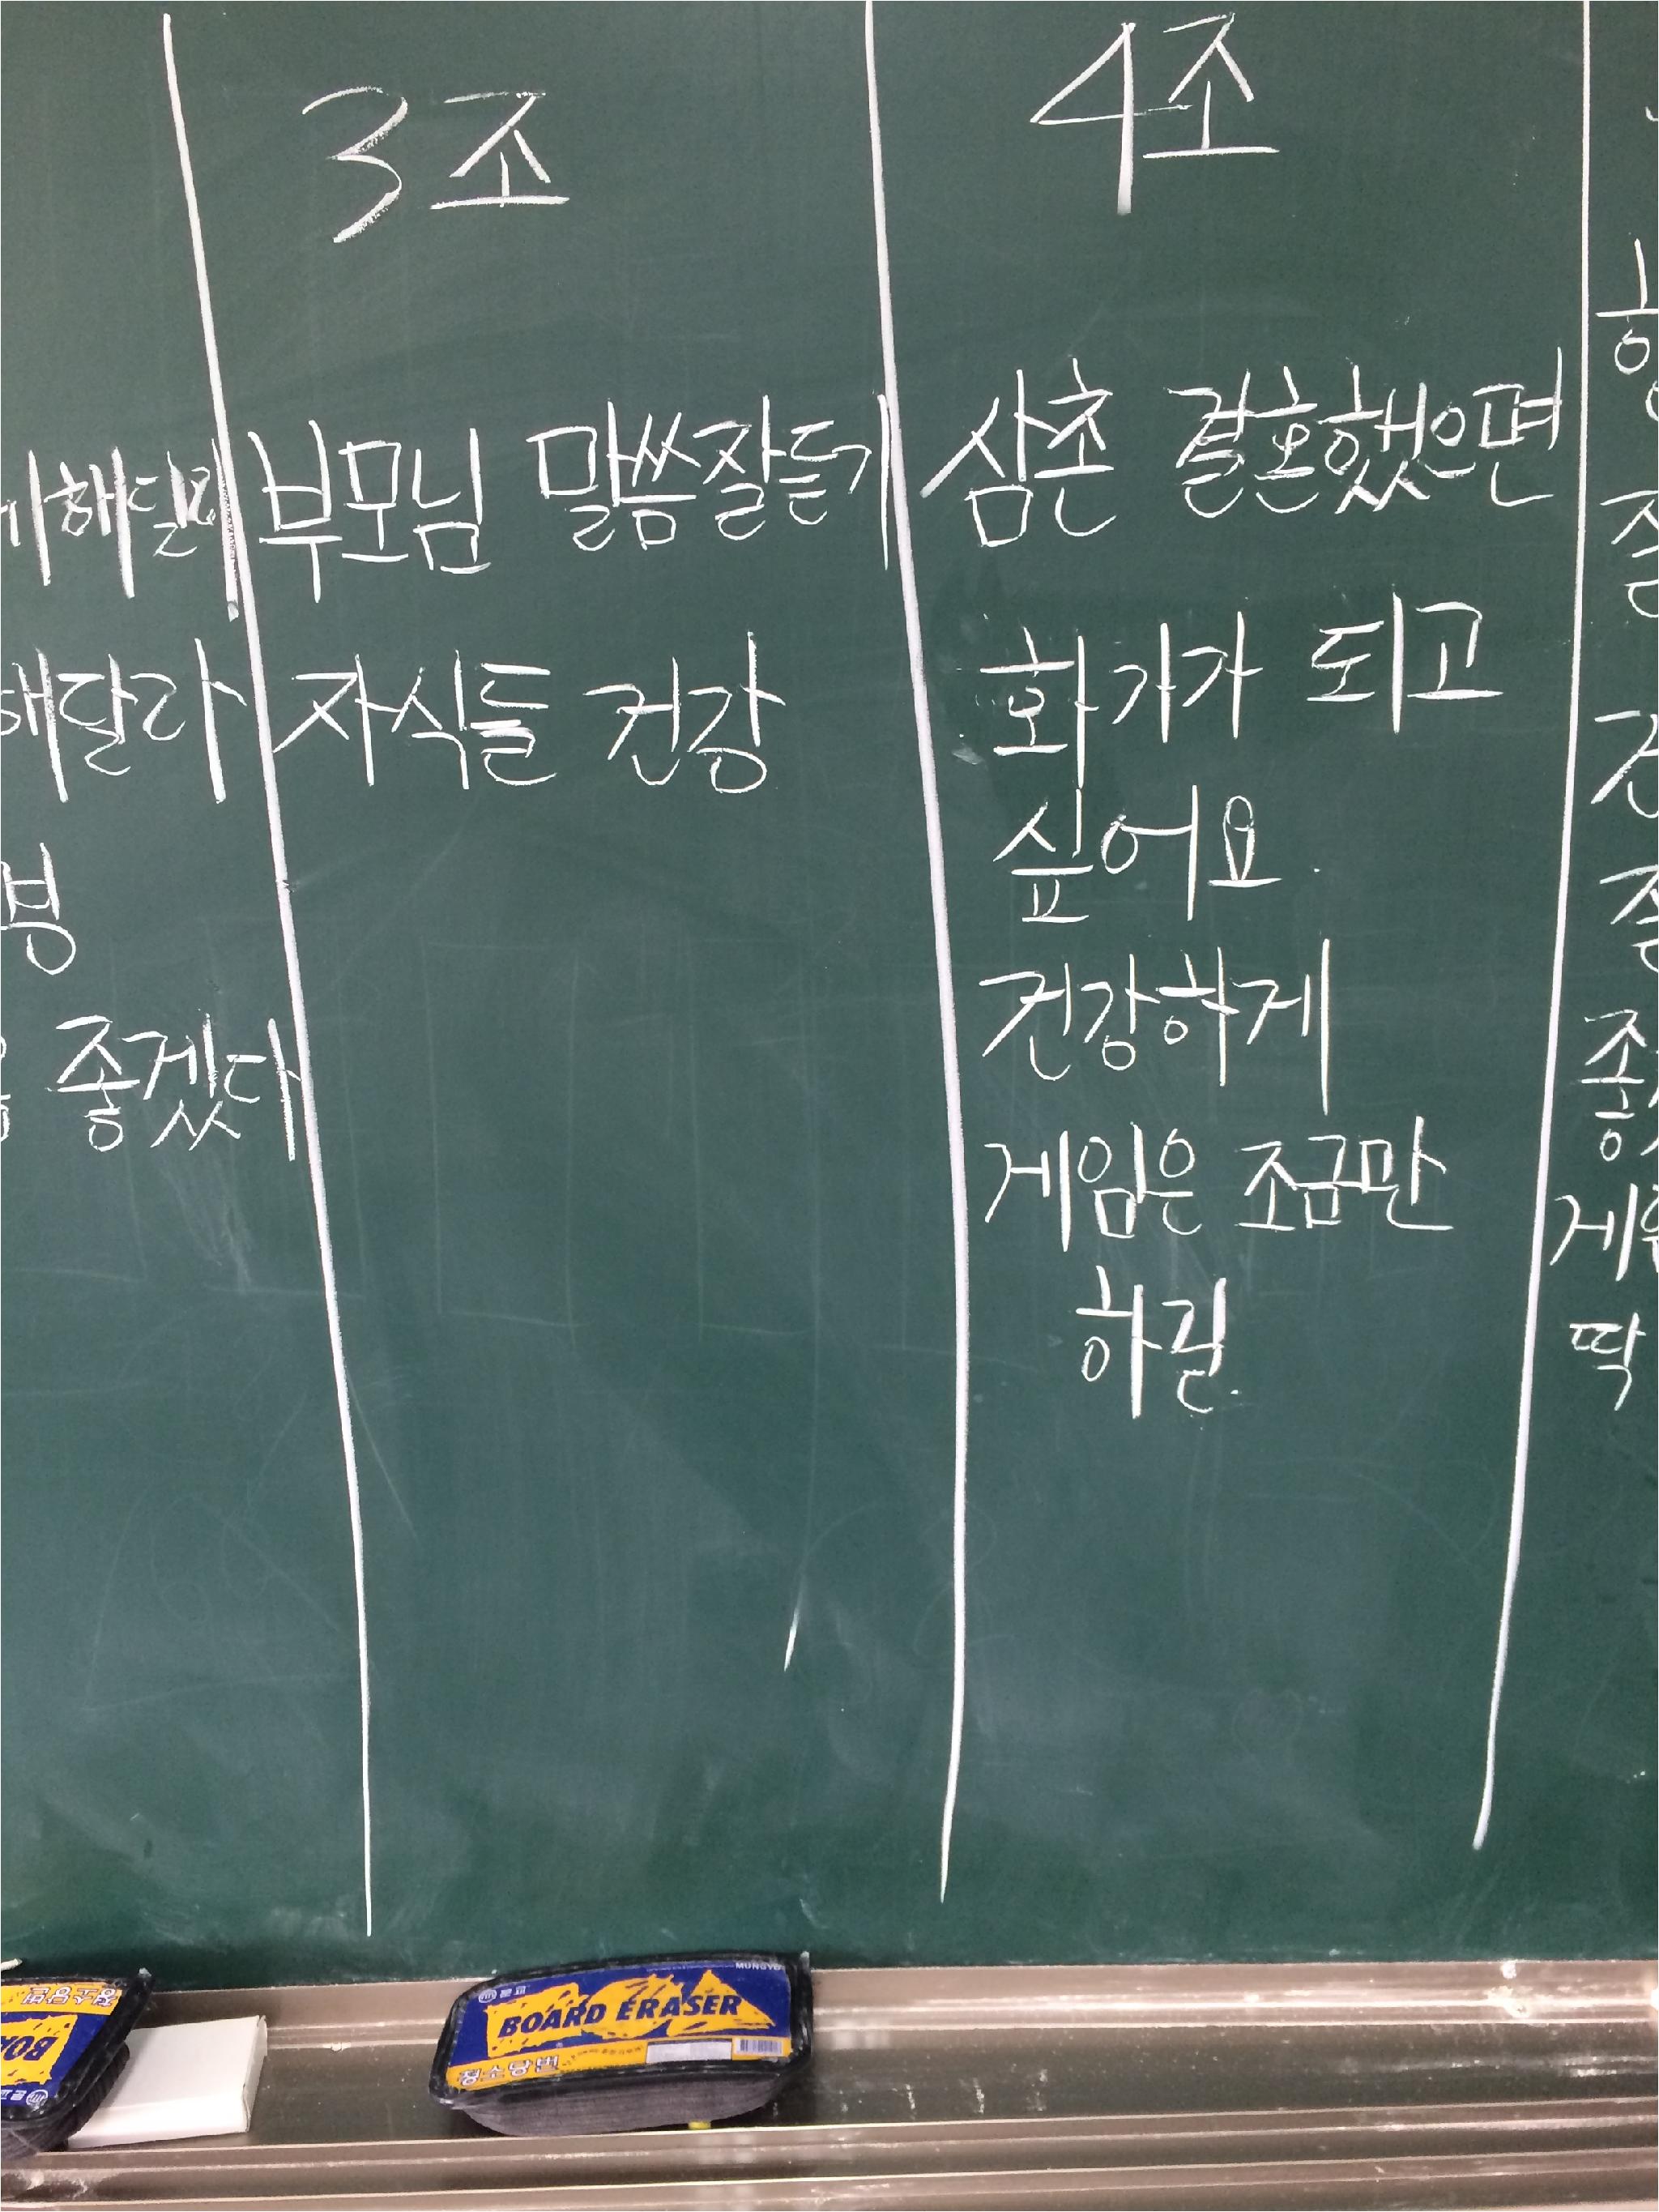 3조
부모님 말씀잘듣기
자식들 건강
4조
삼촌 결혼했으면
화가가 되고
싶어요.
건강하게
게임은 조금만
하길.
해달라
봉
좋겠다
딱
MUNGYO
BOARD ERASER
청소당번